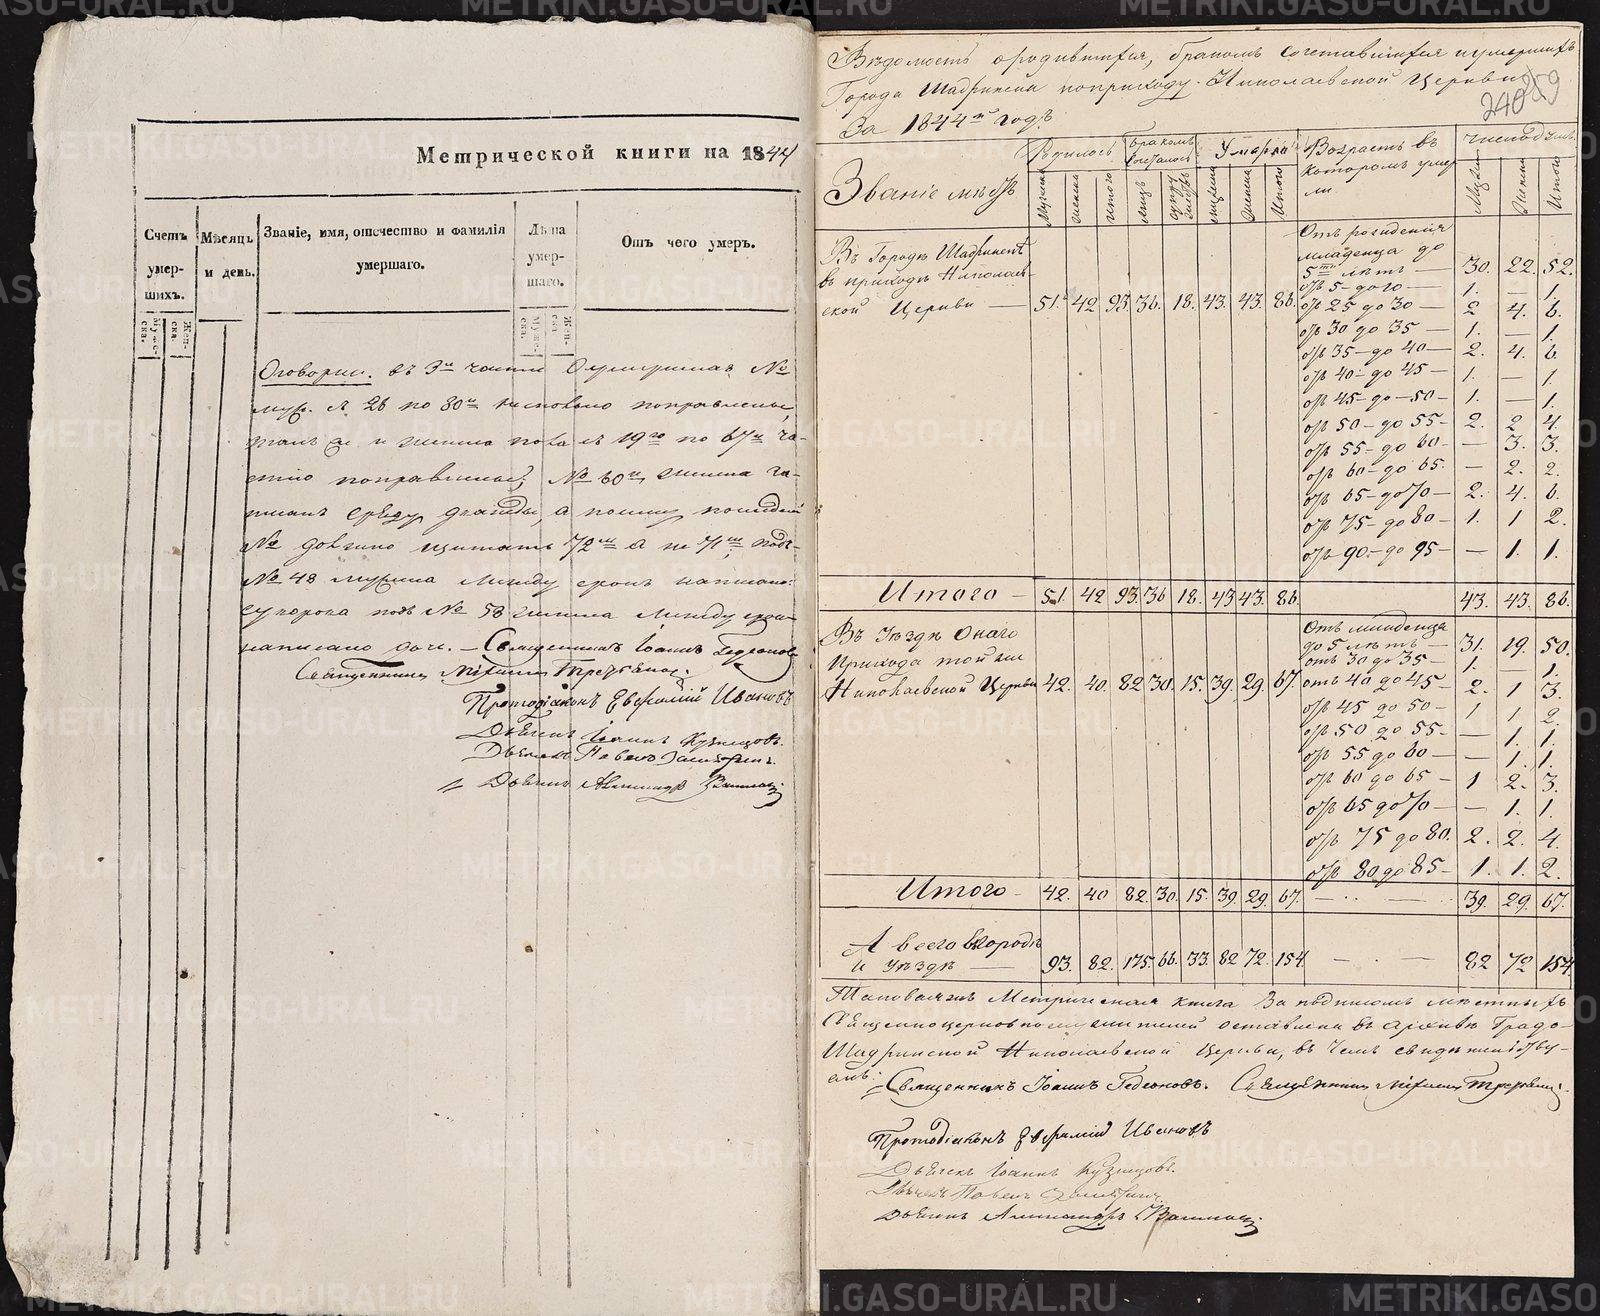 Метрической книги на 1844
Счетъ умер-шихъ.
Мѣсяцъ и день.
Званіе, имя, отечество и фамилія умершаго.
Лѣта умер-шаго.
Отъ чего умеръ.
Муже-ска.
Жен-ска
Муже-ска.
Жен-ска
Оговорки. въ 3й части №
по 30й поправлены,
и женска пола съ 19го по 67й ча-
стію поправлены, № 60й женска
а потому последній
№ должно щитать 72й а не 71й, подъ
№ 48 мужска между строк написано:
подъ № 58 женска между строк
написано дочь. — Священникъ Іоаннъ Гедеоновъ
Священникъ
Протодіаконъ Евфимій Ивановъ
Дьячекъ Іоаннъ Кузнецовъ.
Дьячекъ Павелъ
Дьячекъ Александръ
Вѣдомость о родившихся, бракомъ сочетавшихся и умершихъ
Города Шадринска по приходу Николаевской Церкви
За 1844й годъ.
Званіе мѣстъ
Родилось
Бракомъ сочеталось
Умерло
Возрастъ въ которомъ умер-ли
число душъ.
Мужска
Женска
Итого
Лицъ
Супружествъ
Мужска
Женска
Итого
Мужска
Женска
Итого
Въ Городѣ Шадринскѣ
въ приходѣ Николаев-
ской Церкви — 51. 42 93. 36. 18. 43. 43. 86.
Отъ рожденія
младенца до
5ти лѣтъ — 30. 22. 52.
отъ 5 - до 10 — 1. — 1.
отъ 25 до 30 — 2 4. 6.
отъ 30 до 35 — 1. — 1.
отъ 35 — до 40 — 2. 4. 6
отъ 40 — до 45 — 1. — 1.
отъ 45 — до — 50 — 1. — 1.
отъ 50 — до 55 — 2. 2 4.
отъ 55 — до 60 — — 3. 3.
отъ 60 — до 65. — 2. 2.
отъ 65 — до 70 — 2. 4. 6.
отъ 75 — до 80 — 1. 1 2.
отъ 90 — до 95 — — 1. 1.
Итого — 51. 42 93. 36 18. 43 43. 86. 43. 43. 86.
Въ Уѣздѣ Онаго
прихода той же
Николаевской Церкви 42. 40. 82 30. 15. 39. 29. 67.
Отъ младенца
до 5 лѣтъ — 31. 19. 50.
отъ 30 до 35 — 1. — 1.
отъ 40 до 45 — 2. 1 3.
отъ 45 до 50 — 1 1 2.
отъ 50 до 55 — — 1. 1.
отъ 55 до 60 — — 1. 1.
отъ 60 до 65 — 1 2. 3.
отъ 65 до 70 — — 1. 1.
отъ 75 до 80. 2. 2. 4.
отъ 80 до 85 — 1. 1. 2.
Итого — 42. 40 82. 30. 15. 39. 29. 67. 39. 29. 67.
А всего въ городѣ
и уѣздѣ — 93. 82. 175. 66. 33. 82 72. 154 82 72 154
Таковая жъ Метрическая книга За подписомъ мѣстныхъ
Священноцерковнослужителей оставлена въ архивѣ Градо-
Шадринской Николаевской Церкви, въ Чемъ свидѣтельству-
емъ: Священникъ Іоаннъ Гедеоновъ. Священникъ
Протодіаконъ Евфимій Ивановъ
Дьячекъ Іоаннъ Кузнецовъ.
Дьячекъ Павелъ
Дьячекъ Александръ
METRIKI.GASO-URAL.RU